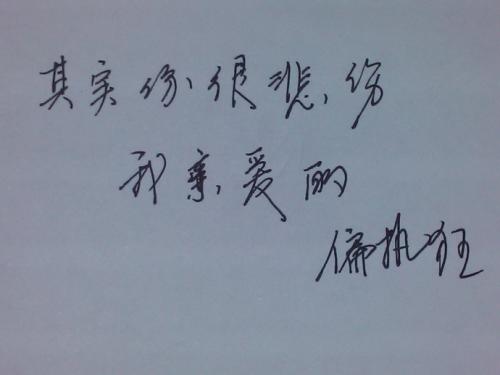 其实你很悲伤
我亲爱的
偏执狂